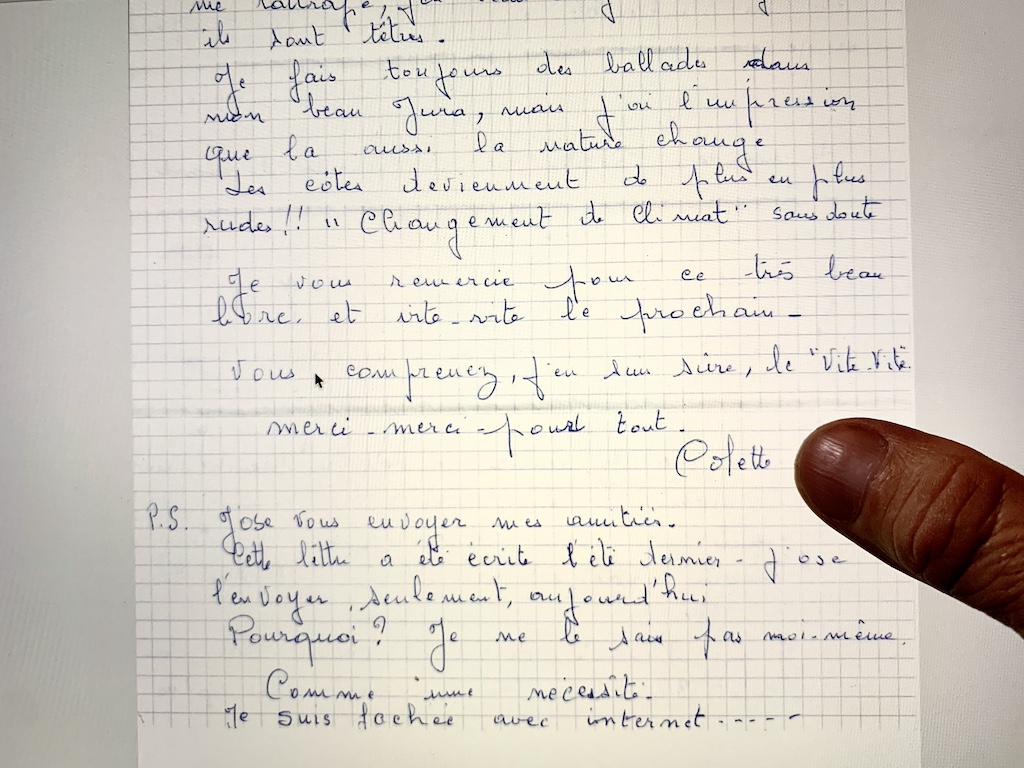 me rattrape, j'en
ils sont têtus.
Je fais toujours des ballades dans
mon beau Jura, mais j'ai l'impression
que la aussi la nature change
Les côtes deviennent de plus en plus
rudes!! " Changement de climat" sans doute
Je vous remercie pour ce très beau
livre. et vite-vite le prochain -
Vous comprenez, j'en suis sûre, le "Vite-Vite".
merci - merci - pour tout.
Colette
P.S. J'ose vous envoyer mes amitiés.
Cette lettre a été écrite l'été dernier - j'ose
l'envoyer, seulement, aujourd'hui
Pourquoi? Je ne le sais pas moi-même.
Comme une nécessité.
Je suis fachée avec internet-----